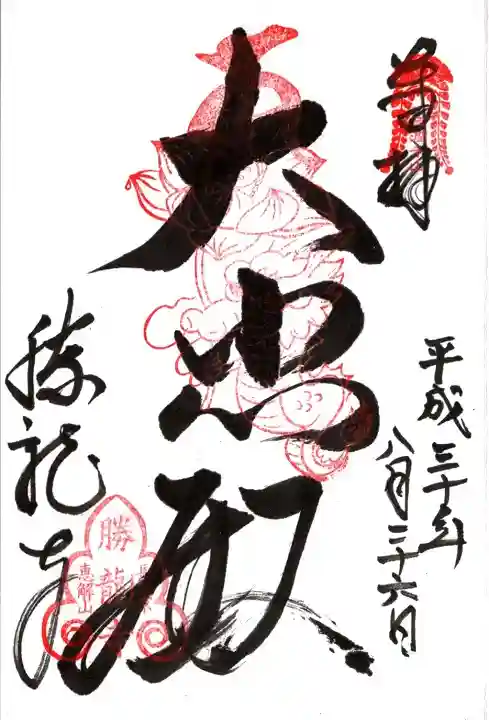 奉拝
平成三十年
八月二十六日
大悲殿
勝龍寺
勝龍寺
恵解山